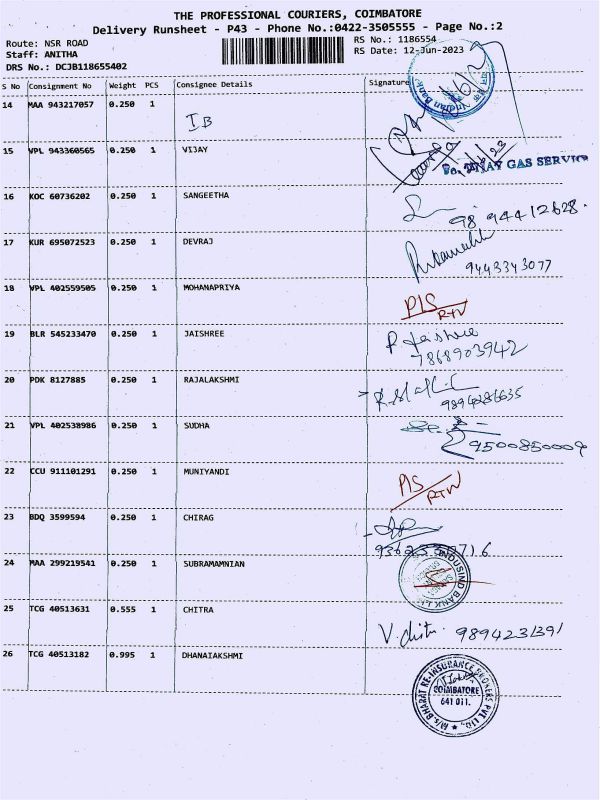 THE PROFESSIONAL COURIERS, COIMBATORE
Delivery Runsheet - P43 - Phone No.:0422-3505555 - Page No.:2
Route: NSR ROAD
Staff: ANITHA
DRS No.: DCJB118655402
RS No.: 1186554
RS Date: 12-Jun-2023
S No Consignment No Weight PCS Consignee Details Signature
14 MAA 943217057 0.250 1
IB
Indian Bank
15 VPL 943360565 0.250 1 VIJAY
VIJAY GAS SERVICE
16 KOC 60736202 0.250 1 SANGEETHA
98 94412628.
17 KUR 695072523 0.250 1 DEVRAJ
9443343077
18 VPL 402559505 0.250 1 MOHANAPRIYA
PIS
RTN
19 BLR 545233470 0.250 1 JAISHREE
P. Jaishree
7868903942
20 PDK 8127885 0.250 1 RAJALAKSHMI
9894286635
21 VPL 402538986 0.250 1 SUDHA
9500850009
22 CCU 911101291 0.250 1 MUNIYANDI
PIS
RTN
23 BDQ 3599594 0.250 1 CHIRAG
24 MAA 299219541 0.250 1 SUBRAMAMNIAN
INDUSIND BANK LTD
25 TCG 40513631 0.555 1 CHITRA
V. chitr 9894231391
26 TCG 40513182 0.995 1 DHANAIAKSHMI
M/s. BHARAT RE-INSURANCE BROKERS PVT. LTD.
COIMBATORE
641 011.